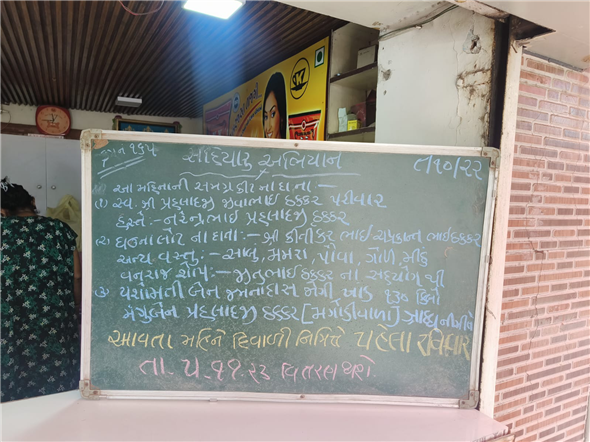 સહિયારુ અભિયાન
તા ૧૦/૨૩
આ મહિનાની સમગ્રકીટ ના દાતા —
(૧) સ્વ. શ્રી પ્રહલાદજી જીવાભાઈ ઠક્કર પરીવાર
હસ્તે:- નરેન્દ્રભાઈ પ્રહલાદજી ઠક્કર
(૨) ઘઉંના લોટ ના દાતા:- શ્રી કીર્તીકર ભાઈ ચંપકલાલ ભાઈ ઠક્કર
અન્ય વસ્તુ:- સાબુ, મમરા, પૌવા, ગોળ, મીઠું
વનરાજ શોપ:- જીતુભાઈ ઠક્કર ના સહયોગ થી
(૩) બેન જમનાદાસ મેગી ખાંડ ૧૩૦ કિલો
મંગુબેન પ્રહલાદજી ઠક્કર [મગોડીવાળા]
આવતા મહિને દિવાળી નિમિત્તે પહેલા રવિવાર
તા. ૫. ૧૧. ૨૩ વિતરણ થશે.